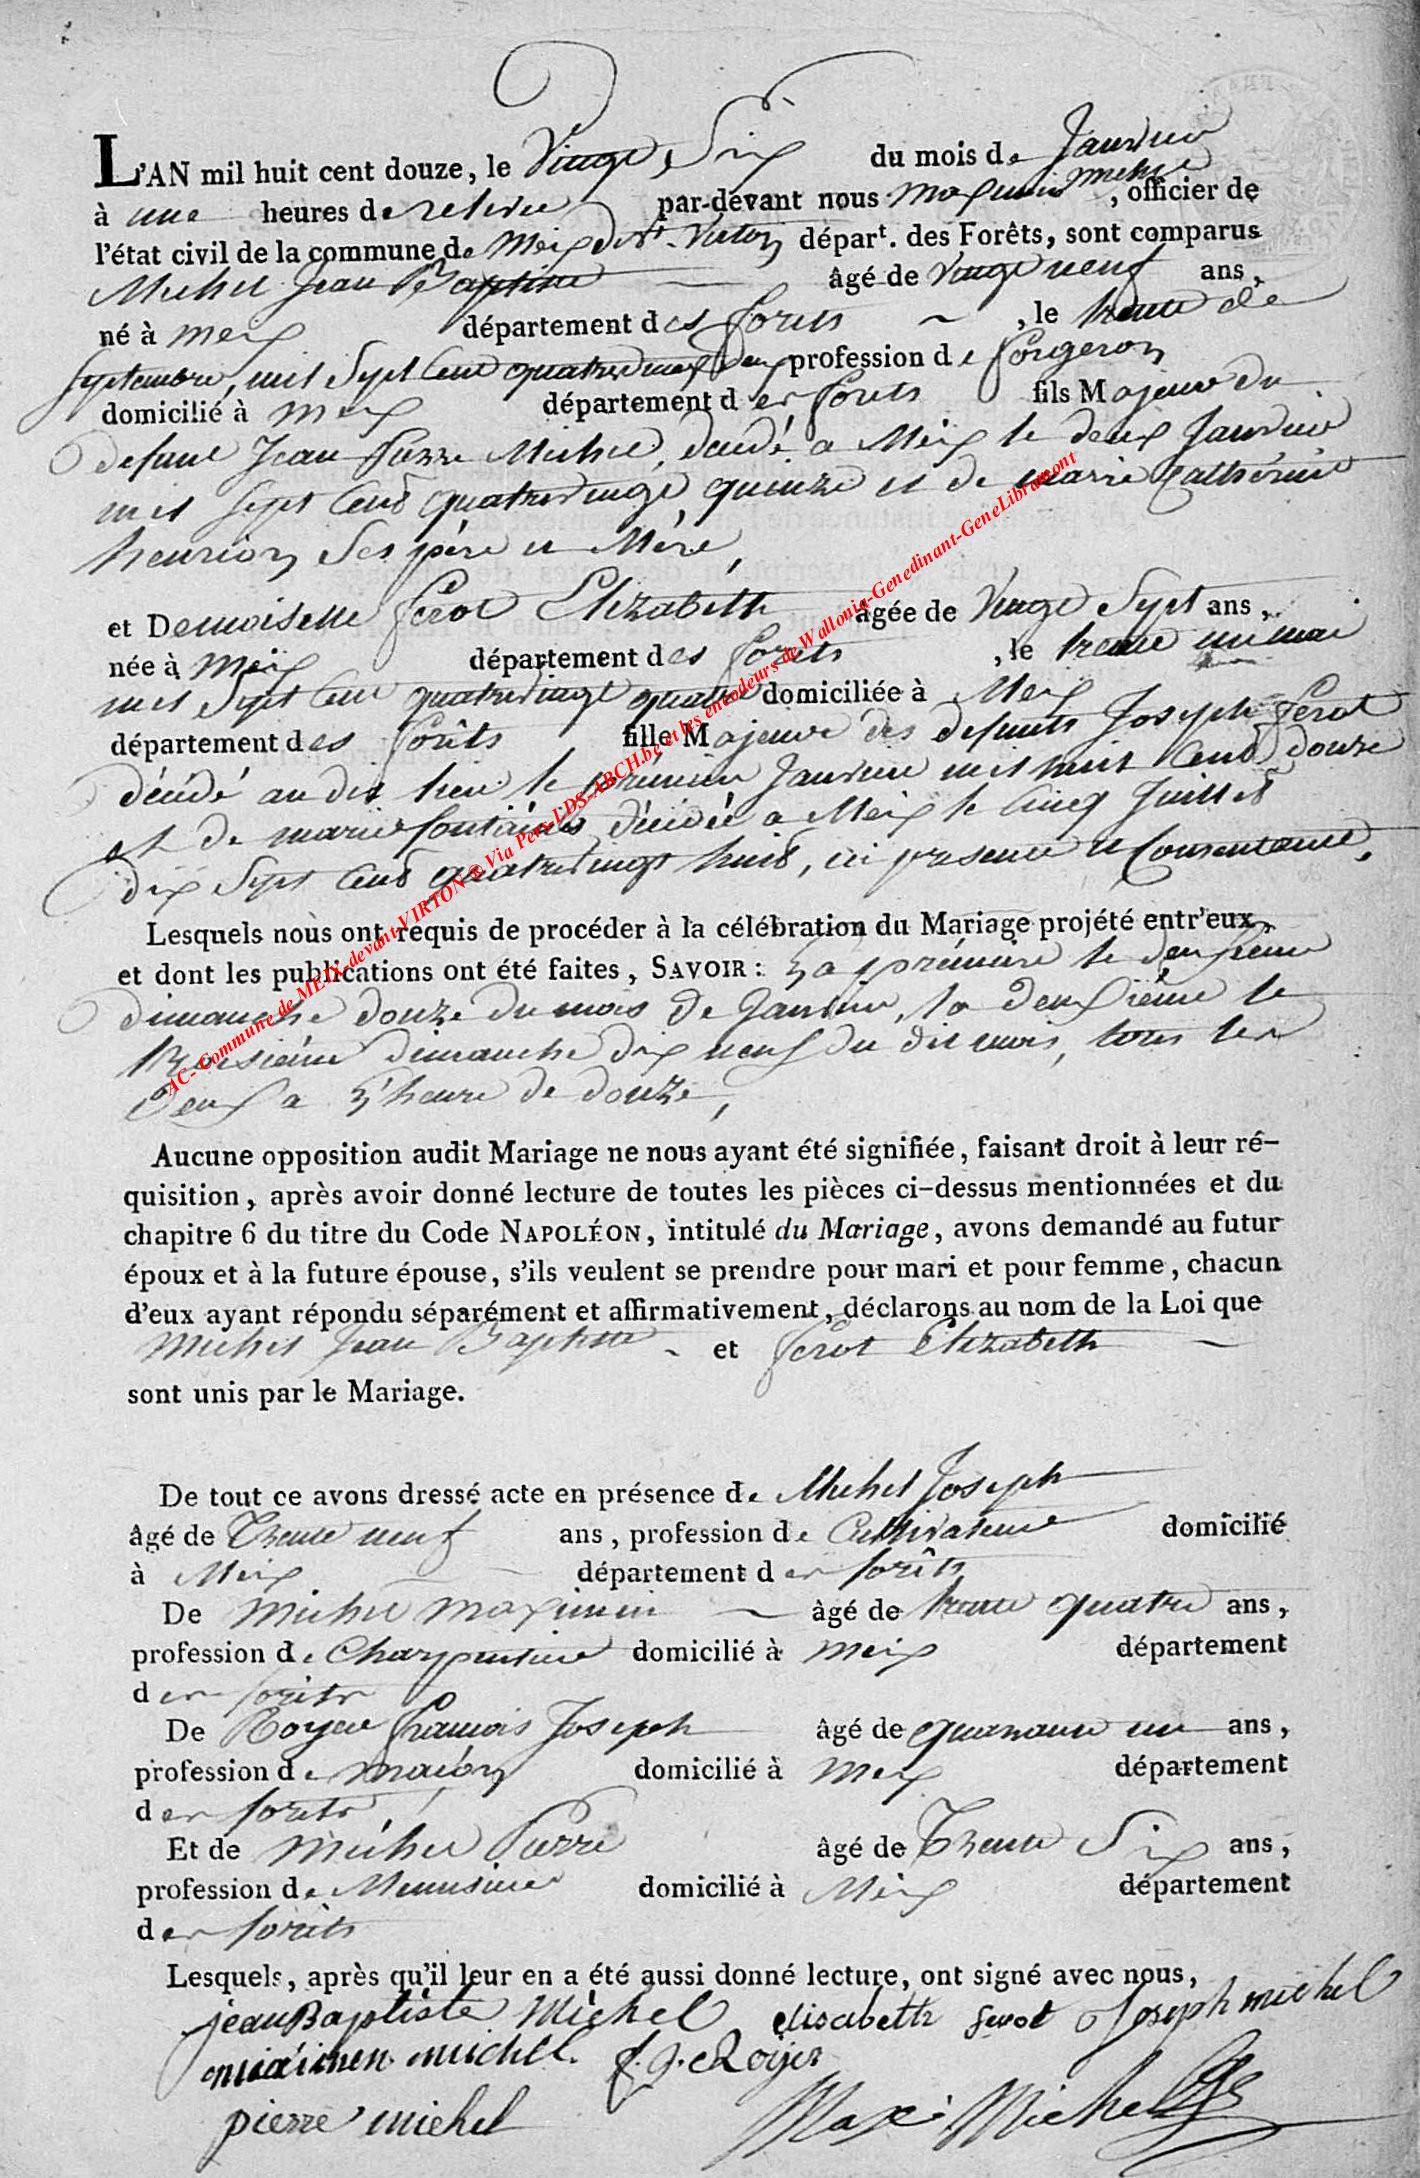 L'AN mil huit cent douze, le Vingt Six du mois de Janvier
à une heures de relevée par-devant nous Maximin Michel, officier de
l'état civil de la commune de Meix dvt. Virton dépar.t des Forêts, sont comparus
Michel Jean Baptiste âgé de vingt neuf ans,
né à Meix département des forets, le trente de
Septembre, mil Sept Cent quatrevingt deux profession de forgeron
domicilié à Meix département des forets fils Majeur du
defunt Jean Pierre Michel, décédé a Meix le deux Janvier
mil Sept Cent quatrevingt quinze et de Marie Catherine
henrion Ses père et Mère,
et Demoiselle ferot Elizabeth âgée de Vingt Sept ans,
née à Meix département des forets, le trente un mai
mil Sept Cent quatrevingt quatre domiciliée à Meix
département des forêts fille Majeure des defunts Joseph ferot
décédé au dit lieu le prémier Janvier mil huit Cent douze
et de marie fontaine décédée a Meix le Cinq Juillet
dix Sept Cent quatrevingt huit, ici presente et Consentante,
Lesquels nous ont requis de procéder à la célébration du Mariage projété entr'eux,
et dont les publications ont été faites, SAVOIR : La prémiere le deuxieme
dimanche douze du mois de Janvier, la deuxième le
troisième dimanche dix neuf du dit mois, tous les
deux a l'heure de douze,
Aucune opposition audit Mariage ne nous ayant été signifiée, faisant droit à leur ré-
quisition, après avoir donné lecture de toutes les pièces ci-dessus mentionnées et du
chapitre 6 du titre du Code NAPOLÉON, intitulé du Mariage, avons demandé au futur
époux et à la future épouse, s'ils veulent se prendre pour mari et pour femme, chacun
d'eux ayant répondu séparément et affirmativement, déclarons au nom de la Loi que
Michel Jean Baptiste et ferot Elizabeth
sont unis par le Mariage.
De tout ce avons dressé acte en présence de Michel Joseph
âgé de Trente neuf ans, profession de Cultivateur domicilié
à Meix département des forêts
De Michel Maximin âgé de trente quatre ans,
profession de Charpentier domicilié à Meix département
des forêts
De Royer François Joseph âgé de quarante un ans,
profession de maçon domicilié à Meix département
des forets,
Et de Michel Pierre âgé de Trente Six ans,
profession de Menusier domicilié à Meix département
des forêts
Lesquels, après qu'il leur en a été aussi donné lecture, ont signé avec nous,
jean Baptiste Michel elisabeth ferot Joseph michel
maximen michel. f. J. Royer
pierre michel Maxi Michel
AC-Commune de MEIX-devant-VIRTON @ Via Pers-LDS-ARCH.be et les encodeurs de Wallonia-Genedinant-GeneLibramont